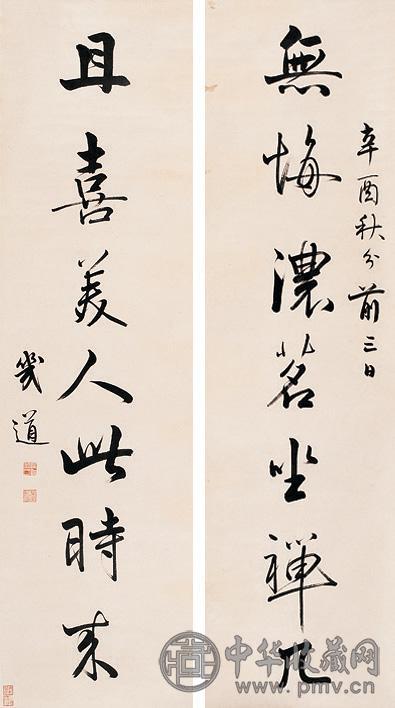 辛酉秋分前三日
無悔濃茗坐禪几
且喜美人此時来
幾道
中华收藏网
www.pmv.cn